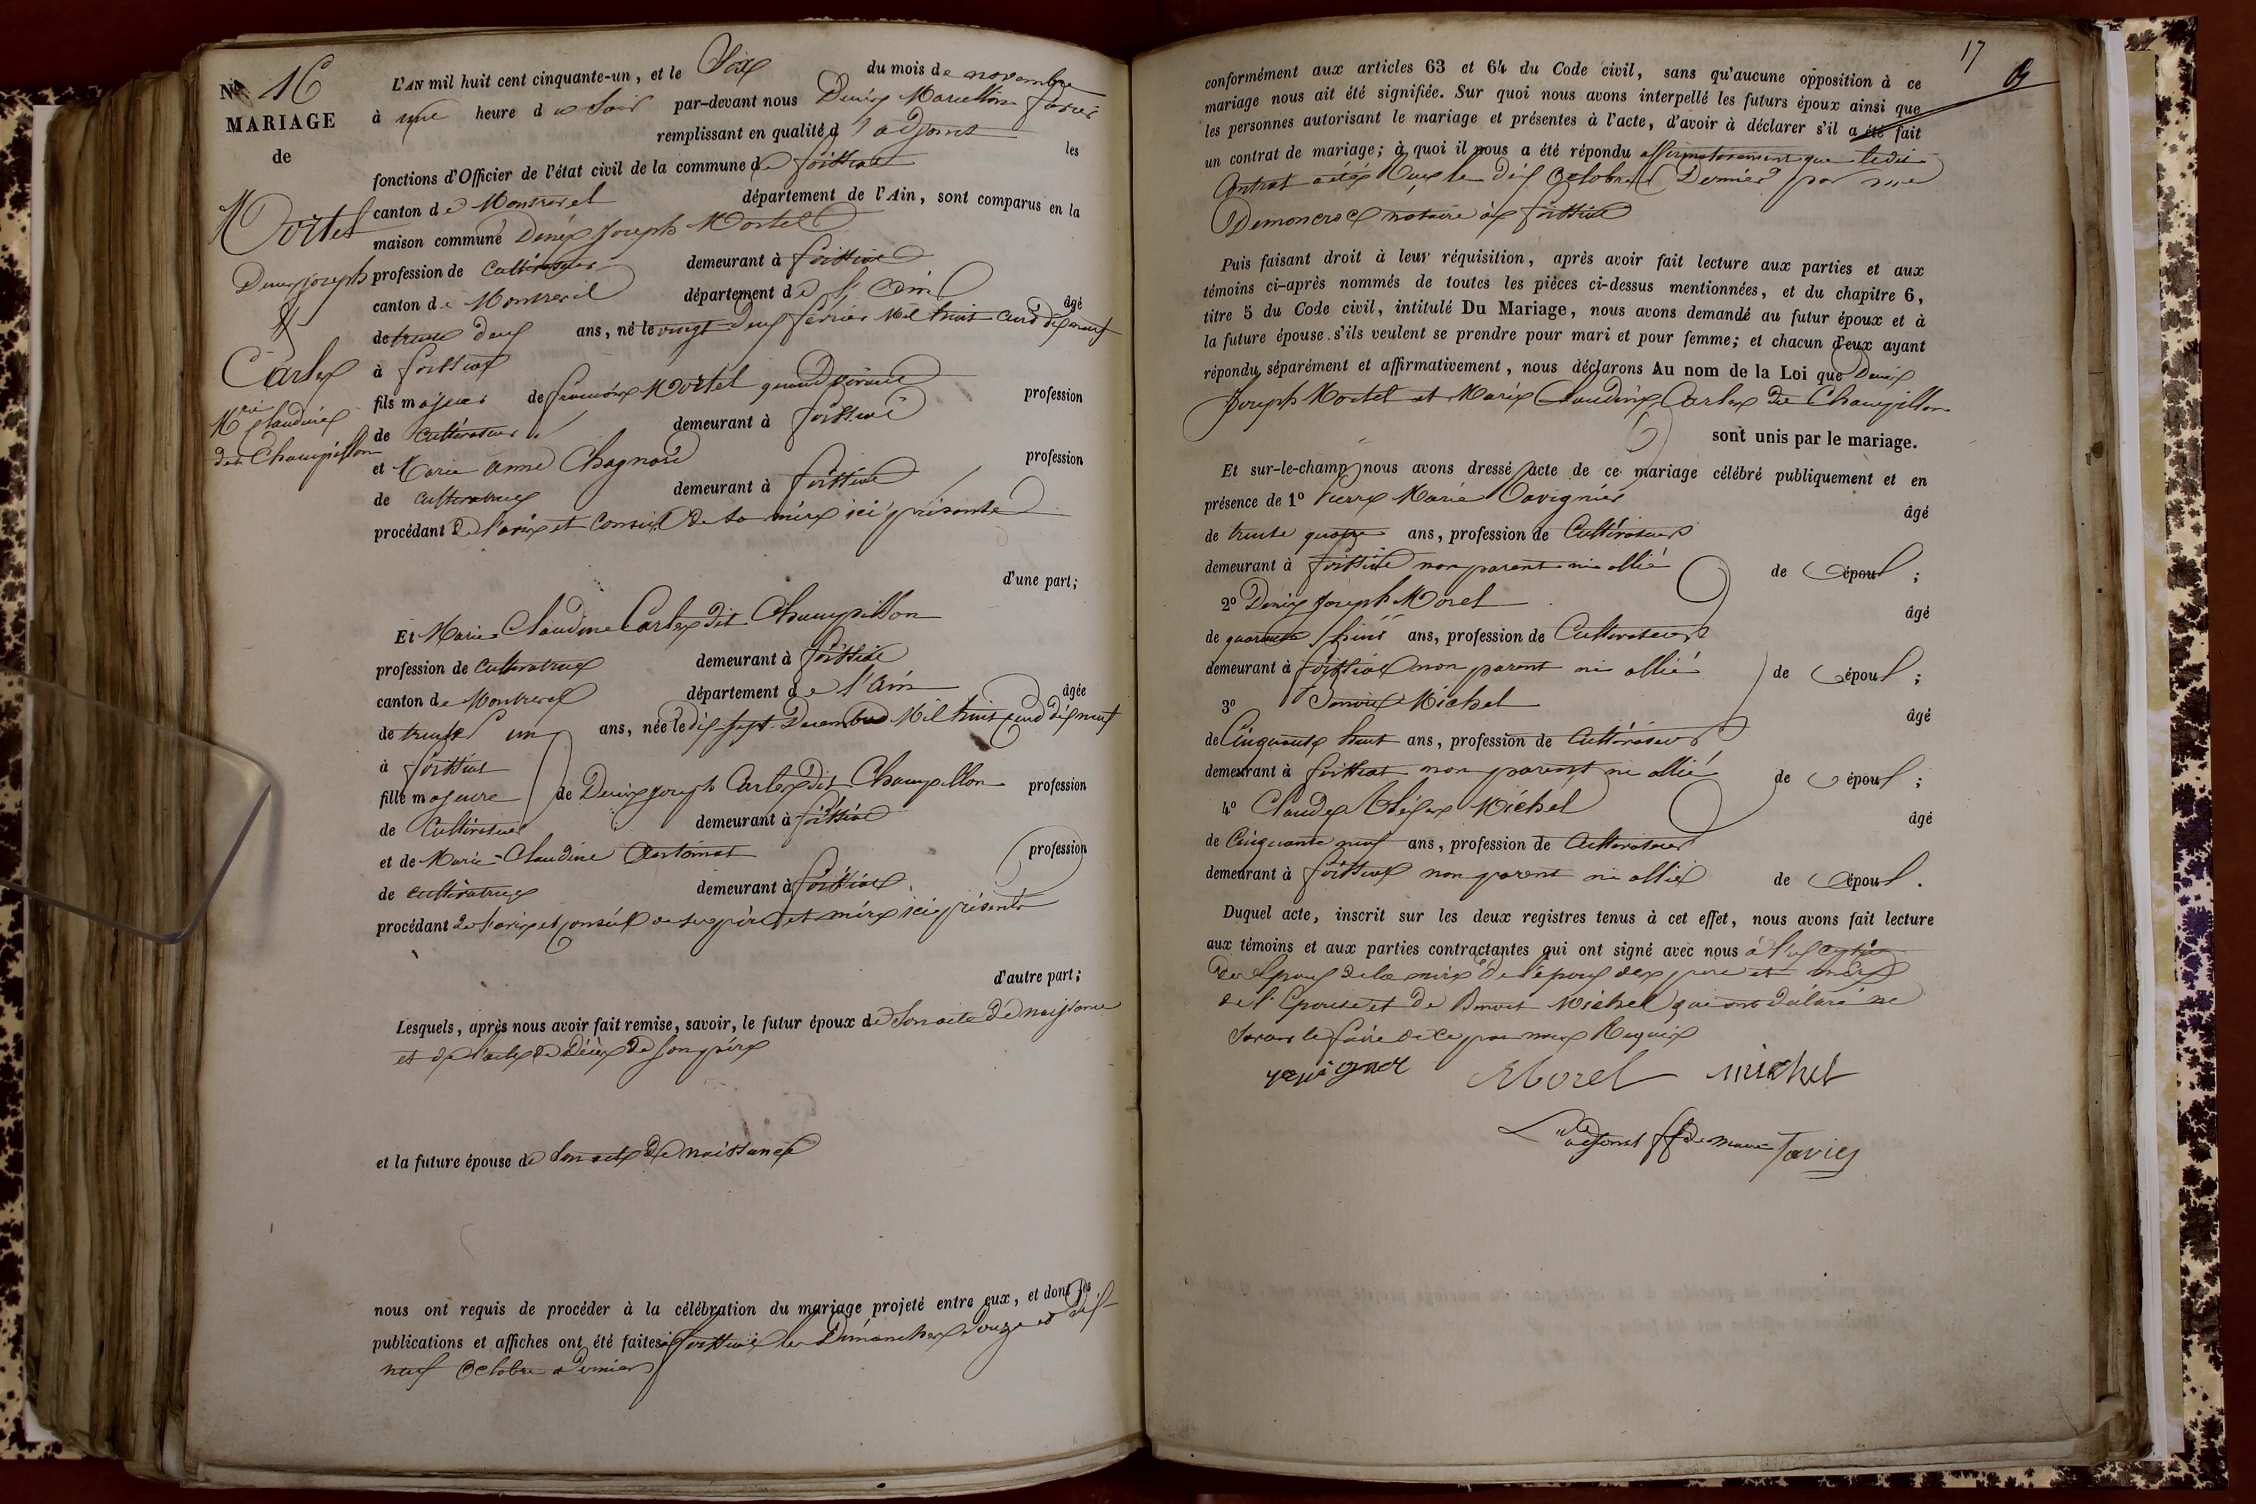 N° 16
MARIAGE
de
Mortel
Denis joseph
&
Carle
Mrie Claudine
dit Champillon
L'AN mil huit cent cinquante-un, et le Six du mois de novembre
à une heure du Soir par-devant nous Denis Marcellin favier
remplissant en qualité d'adjoint les
fonctions d'Officier de l'état civil de la commune de foissiat
canton de Montrevel département de l'Ain, sont comparus en la
maison commune Denis Joseph Mortel
profession de Cultivateur demeurant à foissiat
canton de Montrevel département de l'Ain âgé
de trente deux ans, né le vingt deux février Mil huit cent dix neuf
à foissiat
fils majeur de françois Mortel quand vivait profession
de Cultivateur demeurant à foissiat
et Marie Anne Chagnard profession
de cultivatrice demeurant à foissiat
procédant de l'avis et Conseil de sa mère ici présente
d'une part;
Et Marie Claudine Carle dit Champillon
profession de cultivatrice demeurant à foissiat
canton de Montrevel département de l'Ain âgée
de trente un ans, née le dix sept Decembre Mil huit cent dix neuf
à foissiat
fille majeure de Denis joseph Carle dit Champillon profession
de Cultivateur demeurant à foissiat
et de Marie Claudine profession
de cultivatrice demeurant à foissiat
procédant de l'avis et conseil de ses père et mère ici présents
d'autre part;
Lesquels, après nous avoir fait remise, savoir, le futur époux de Son acte de naissance
et de l'acte de décès de son père
et la future épouse de Son acte de naissance
nous ont requis de procéder à la célébration du mariage projeté entre eux, et dont les
publications et affiches ont été faites à foissiat les Dimanches Douze et dix
neuf Octobre dernier
17
conformément aux articles 63 et 64 du Code civil, sans qu'aucune opposition à ce
mariage nous ait été signifiée. Sur quoi nous avons interpellé les futurs époux ainsi que
les personnes autorisant le mariage et présentes à l'acte, d'avoir à déclarer s'il a été fait
un contrat de mariage; à quoi il nous a été répondu affirmativement que ledit
Contrat a été reçu le dix Octobre Dernier par me
notaire à foissiat
Puis faisant droit à leur réquisition, après avoir fait lecture aux parties et aux
témoins ci-après nommés de toutes les pièces ci-dessus mentionnées, et du chapitre 6,
titre 5 du Code civil, intitulé Du Mariage, nous avons demandé au futur époux et à
la future épouse s'ils veulent se prendre pour mari et pour femme; et chacun d'eux ayant
répondu séparément et affirmativement, nous déclarons Au nom de la Loi que Denis
Joseph Mortel et Marie Claudine Carle dit Champillon
sont unis par le mariage.
Et sur-le-champ nous avons dressé acte de ce mariage célébré publiquement et en
présence de 1° Pierre Marie Vavignier âgé
de trente quatre ans, profession de Cultivateur
demeurant à foissiat non parent ni allié de l'époux;
2° Denis Joseph Morel âgé
de quarante huit ans, profession de Cultivateur
demeurant à foissiat non parent ni allié de l'époux;
3° Benoit Michel âgé
de Cinquante huit ans, profession de Cultivateur
demeurant à foissiat non parent ni allié de l'époux;
4° Claude Michel âgé
de Cinquante neuf ans, profession de Cultivateur
demeurant à foissiat non parent ni allié de l'époux.
Duquel acte, inscrit sur les deux registres tenus à cet effet, nous avons fait lecture
aux témoins et aux parties contractantes qui ont signé avec nous à l'exception
des Epoux de la mère de l'époux des père et mère
de l'Epouse et de Benoit Michel qui ont déclaré ne
Savoir le faire de ce par nous Requis
Morel michel
L'adjoint ff de maire favier